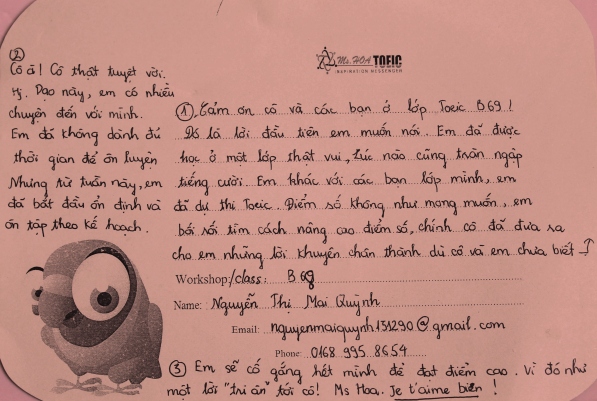 Ms. HOA TOEIC
INSPIRATION MESSENGER
① Cảm ơn cô và các bạn ở lớp Toeic B69!
Đó là lời đầu tiên em muốn nói. Em đã được
học ở một lớp thật vui, lúc nào cũng tràn ngập
tiếng cười. Em khác với các bạn lớp mình, em
đã dự thi Toeic. Điểm số không như mong muốn, em
bối rối tìm cách nâng cao điểm số, chính cô đã đưa ra
cho em những lời khuyên chân thành dù cô và em chưa biết
②
Cô ạ! Cô thật tuyệt vời.
Dạo này, em có nhiều
chuyện đến với mình.
Em đã không dành đủ
thời gian để ôn luyện
Nhưng từ tuần này, em
đã bắt đầu ổn định và
ôn tập theo kế hoạch.
Workshop:/class: B69
Name: Nguyễn Thị Mai Quỳnh
Email: nguyenmaiquynh131290@gmail.com
Phone: 0168 995 8654
③ Em sẽ cố gắng hết mình để đạt điểm cao. Vì đó như
một lời "tri ân" tới cô! Ms Hoa. Je t'aime bien!